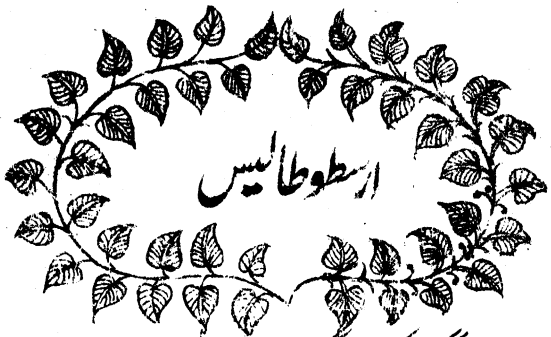 ارسطوطالیس